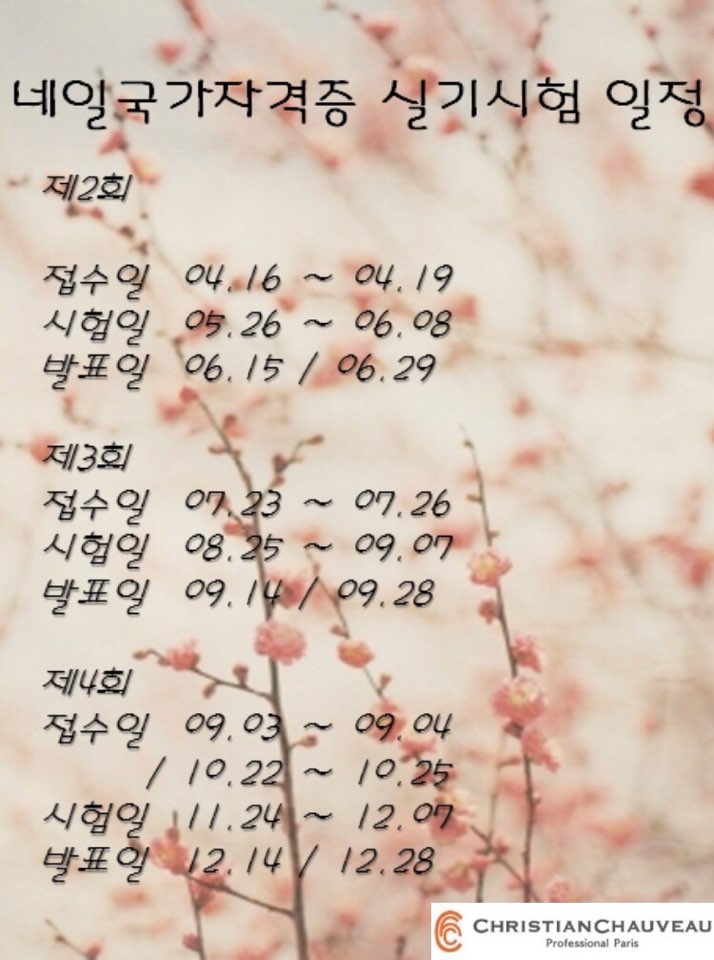 네일국가자격증 실기시험 일정
제2회
접수일 04.16 ~ 04.19
시험일 05.26 ~ 06.08
발표일 06.15 / 06.29
제3회
접수일 07.23 ~ 07.26
시험일 08.25 ~ 09.07
발표일 09.14 / 09.28
제4회
접수일 09.03 ~ 09.04
/ 10.22 ~ 10.25
시험일 11.24 ~ 12.07
발표일 12.14 / 12.28
CHRISTIANCHAUVEAU
Professional Paris